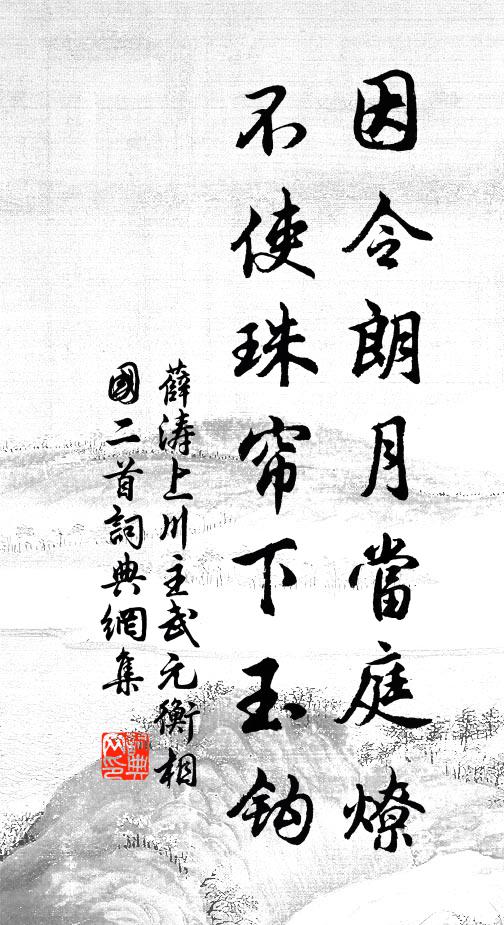 因令朗月當庭燎
不使珠帘下玉鈎
薛濤上川主武元衡相
國二首詞典網集